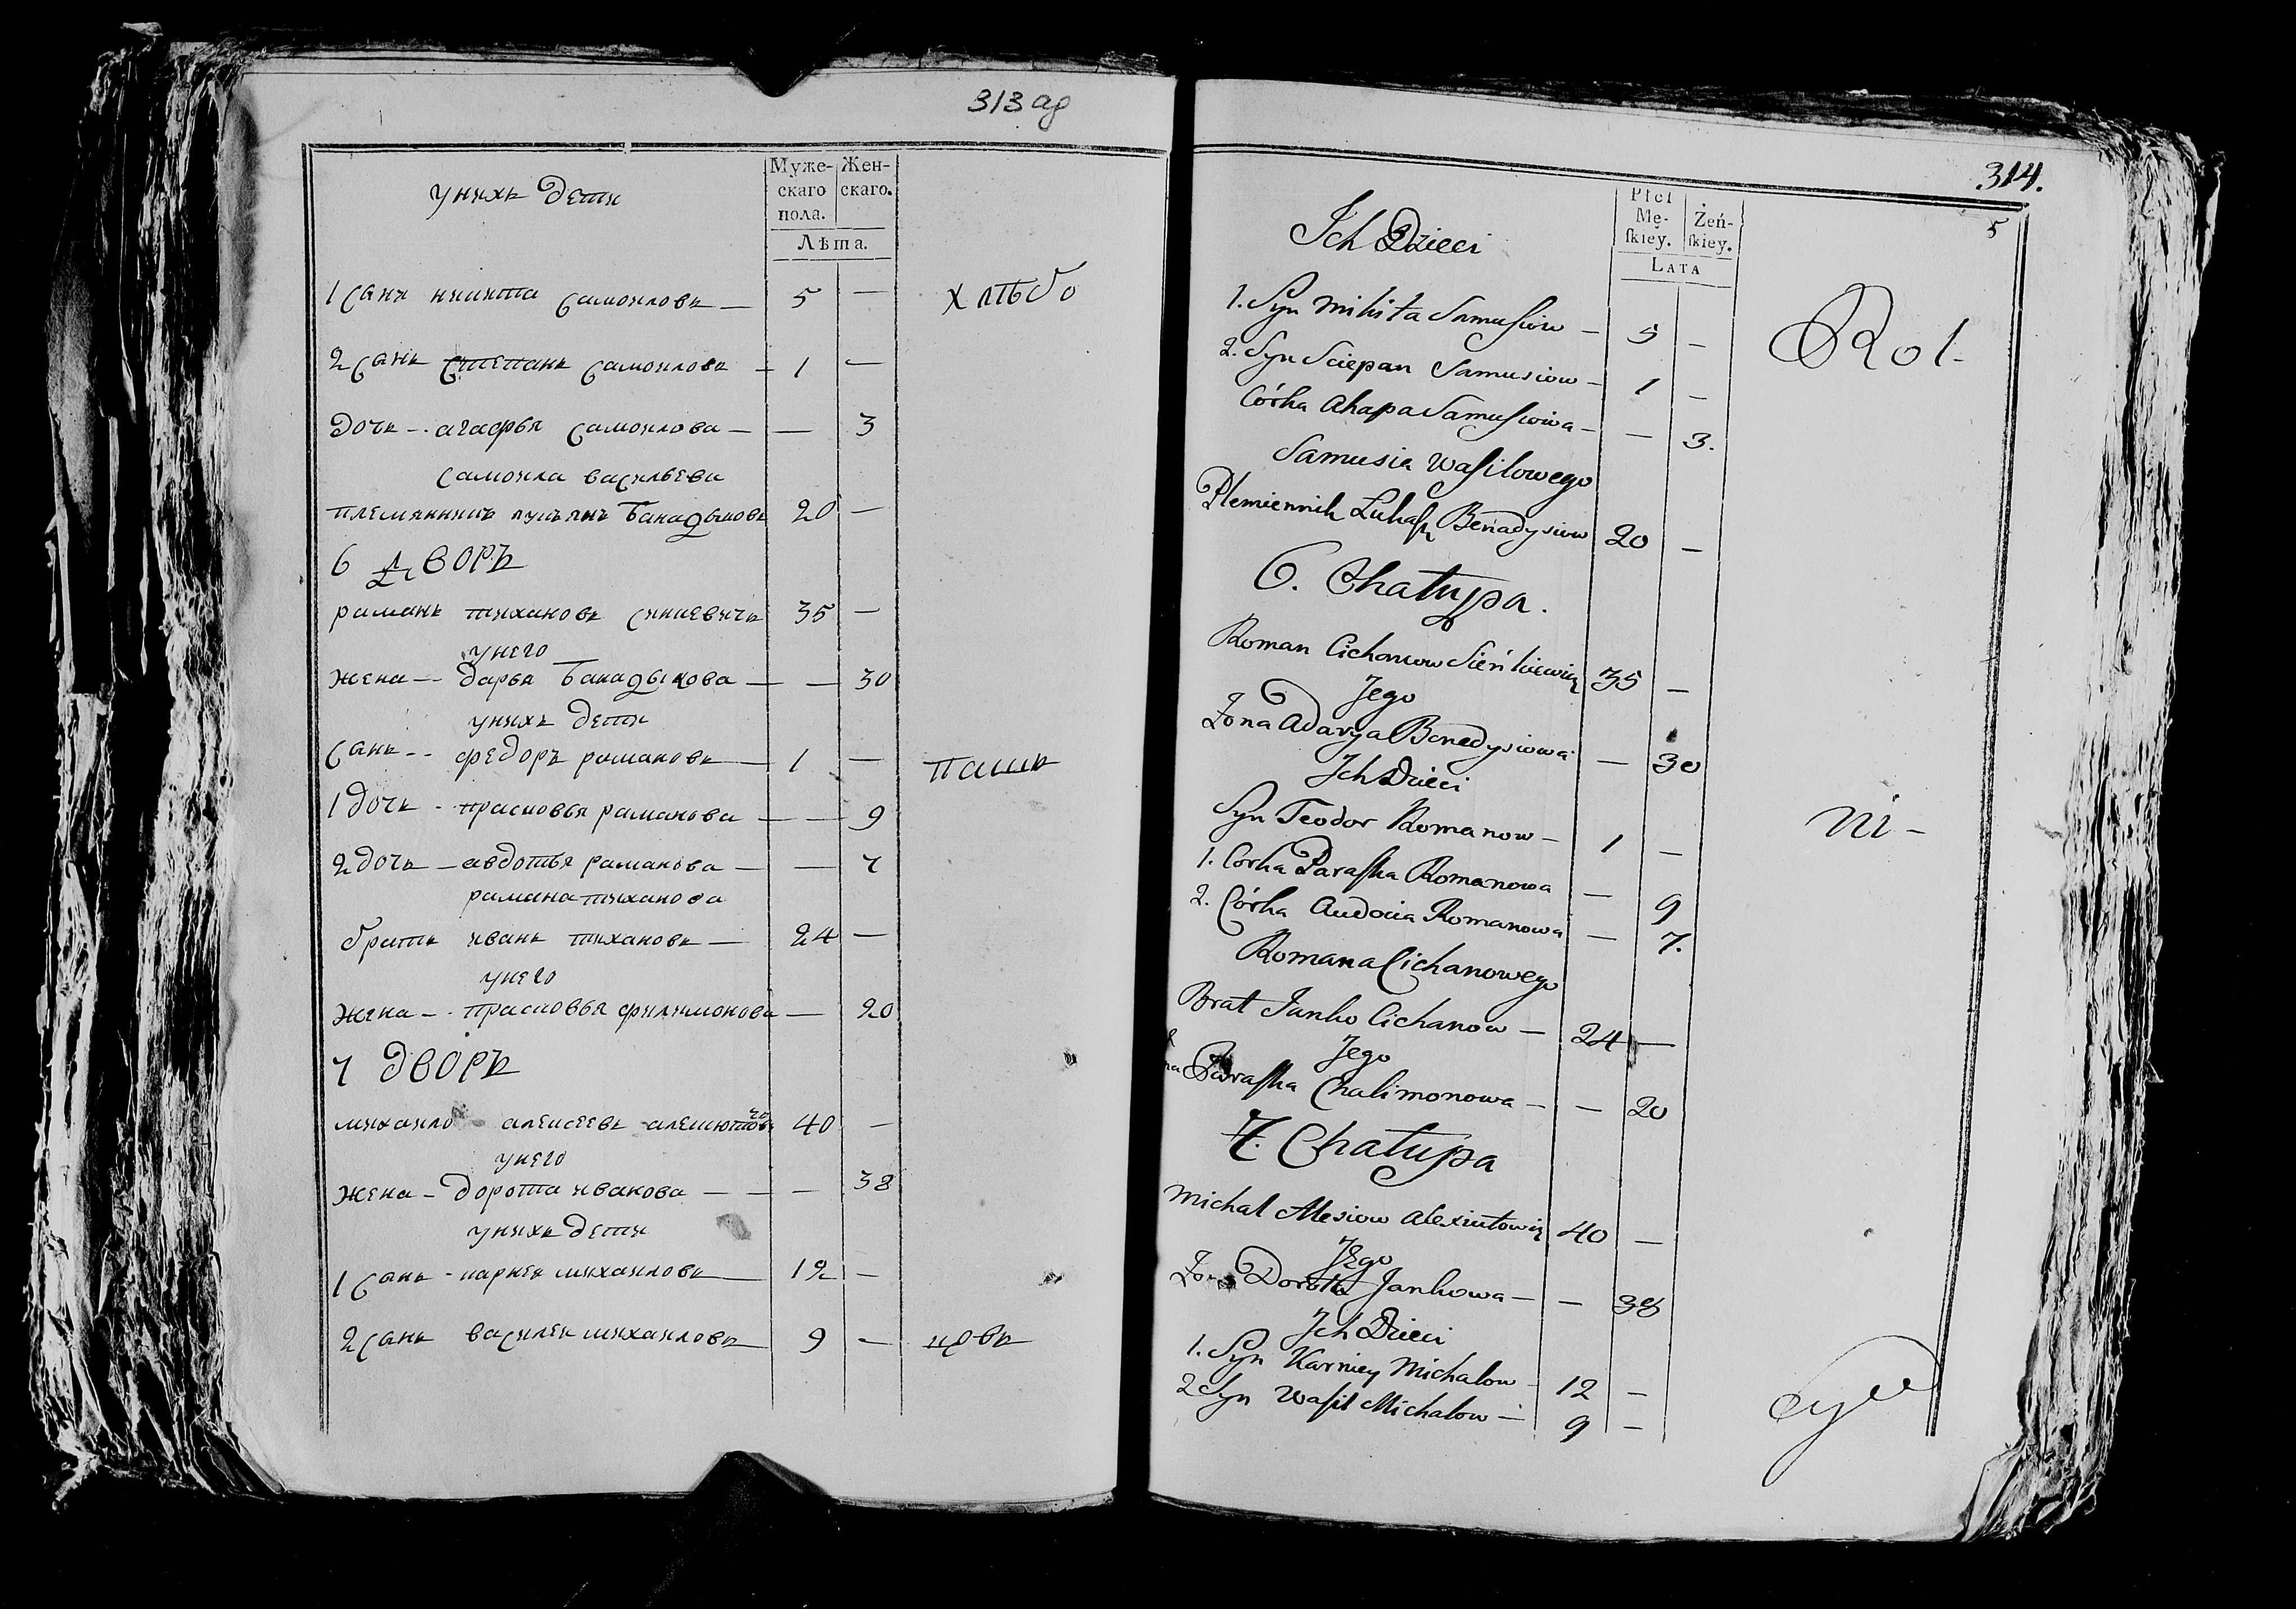 313 ад
у нихъ дети
Муже-
скаго
пола.
Жен-
скаго.
Лѣта.
1 Сынъ никита самоиловъ — 5 —
хлѣбо
2 Сынъ степанъ самоиловъ — 1 —
дочь — агафья самоилова — — 3
самоила васильева
племянникъ лукьянъ Банадыковъ 20 —
6 ДВОРЪ
раманъ тихановъ синкевичъ 35 —
у него
жена — дарья Банадыкова — — 30
у нихъ дети
сынъ — федоръ рамановъ — 1 —
паши
1 дочь — прасковья раманова — — 9
2 дочь — авдотья раманова — — 7
рамана тиханова
братъ иванъ тихановъ — 24 —
у него
жена — прасковья филимонова — 20
7 ДВОРЪ
михаило алексеевъ 40 —
у него
жена — дорота иванова — — 38
у нихъ дети
1 сынъ — карней михаиловъ — 12 —
2 сынъ василей михаиловъ — 9 —
цовъ
314.
5
Płci
Mę-
ſkiey.
Żeń-
ſkiey.
LATA
Ich Dzieci
1. Syn Mikita Samusiow — 5 —
Rol-
2. Syn Sciepan Samusiow — 1 —
Córka Ahapa Samusiowa — — 3.
Samusia Wasilowego
Plemiennik Łukasz Benadysiow 20 —
6. Chałupa.
Roman Cichanow Sieńkiewicz 35 —
Jego
Żona Adarya Benedysiowa — 30
Ich Dzieci
Syn Teodor Romanow — 1 —
ni-
1. Corka Paraska Romanowa — 9
2. Córka Audocia Romanowa — 7.
Romana Cichanowego
Brat Janko Cichanow — 24 —
Jego
Paraska Chalimonowa — — 20
7. Chałupa
Michał Alesiow Alexiutowicz 40 —
Jego
Żona Dorota Jankowa — — 38
Ich Dzieci
1. Syn Karniey Michałow — 12 —
2 Syn Wasil Michałow — 9 —
cy